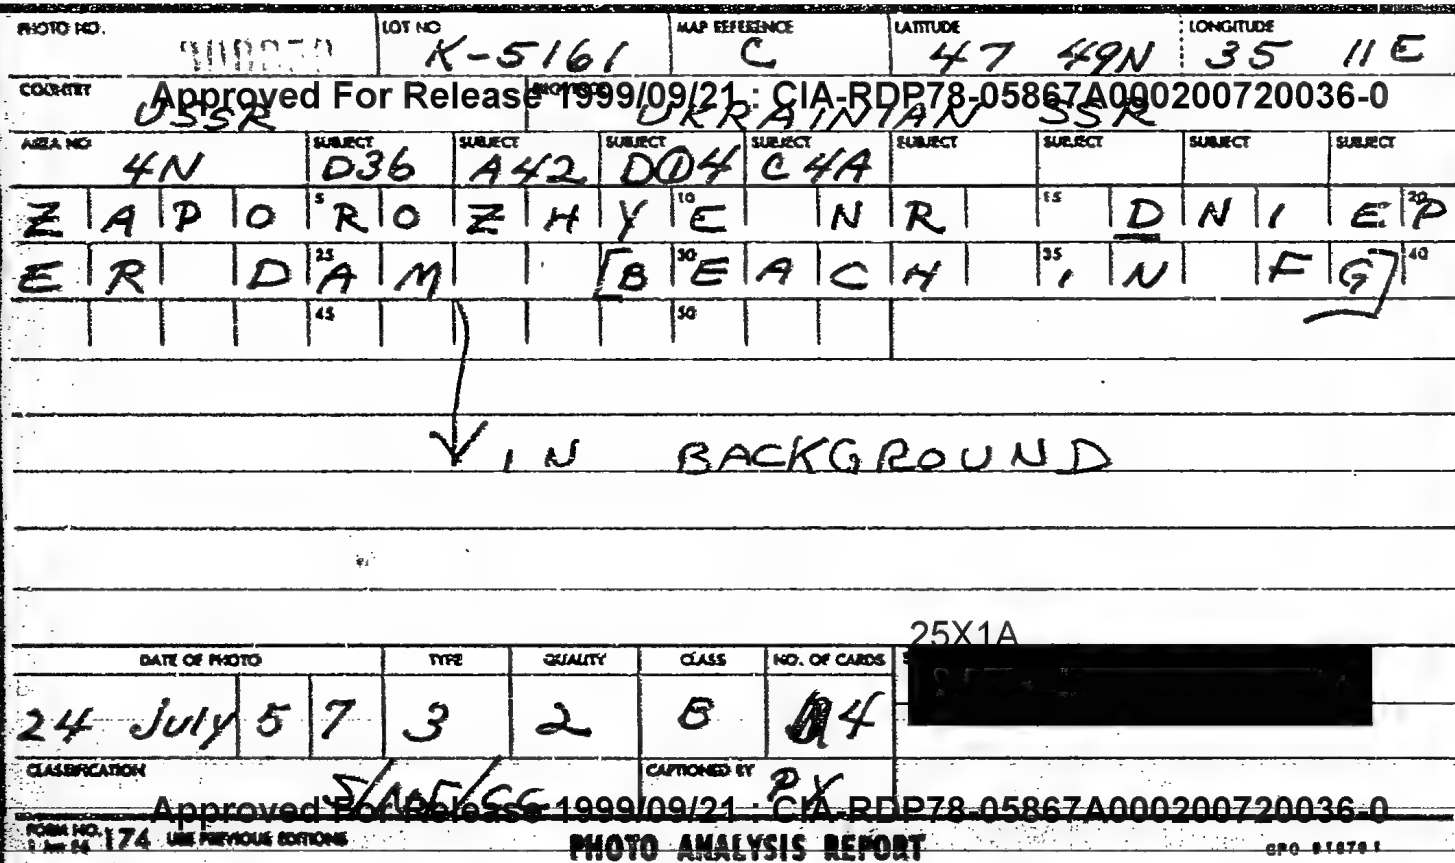 PHOTO NO. LOT NO K-5161 MAP REFERENCE C LATITUDE 47 49N LONGITUDE 35 11 E
Approved For Release 1999/09/21 : CIA-RDP78-05867A000200720036-0
COUNTRY USSR PROVINCE UKRAINIAN SSR
AREA NO 4N SUBJECT D36 SUBJECT A42 SUBJECT D04 SUBJECT C4A SUBJECT SUBJECT SUBJECT SUBJECT
ZAPOROZHYE NR DNIEP
ER DAM [BEACH IN FG]
IN BACKGROUND
25X1A
DATE OF PHOTO TYPE QUALITY CLASS NO. OF CARDS
24 July 57 3 2 B 4
CLASSIFICATION CAPTIONED BY
Approved For Release 1999/09/21 : CIA-RDP78-05867A000200720036-0
FORM NO. 174 USE PREVIOUS EDITIONS PHOTO ANALYSIS REPORT